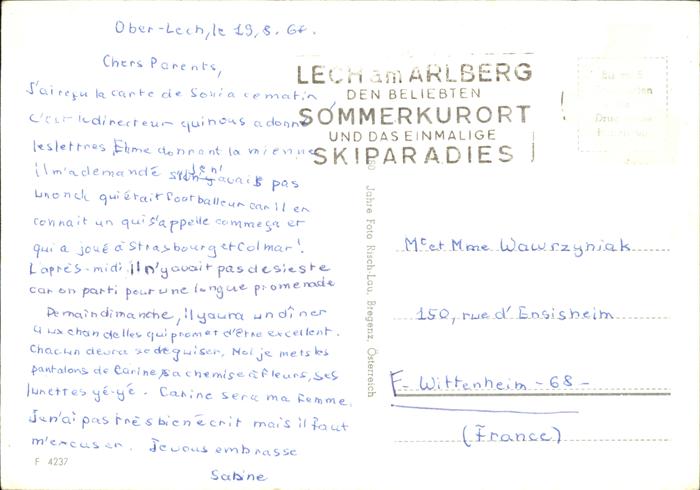 Ober-Lech, le 19, 8. 67.
Chers Parents,
J'ai reçu la carte de Sonia ce matin
C'est le directeur qui nous a donné
les lettres Et me donnant la mienne
il m'a demandé si je n'avais pas
un oncle qui était footballeur car il en
connait un qui s'appelle comme ça et
qui a joué à Strasbourg et Colmar!
L'après-midi il n'y avait pas de sieste
car on parti pour une longue promenade
Demain dimanche, il y aura un dîner
aux chandelles qui promet d'être excellent.
Chacun devra se déguiser. Moi je mets les
pantalons de Carine, sa chemise à fleurs, ses
lunettes yé-yé. Carine sera ma femme.
Je n'ai pas très bien écrit mais il faut
m'excuser. Je vous embrasse
Sabine
F 4237
LECH am ARLBERG
DEN BELIEBTEN
SOMMERKURORT
UND DAS EINMALIGE
SKIPARADIES !
Jahre Foto Risch-Lau, Bregenz, Österreich
Mr et Mme Wawrzyniak
150, rue d'Ensisheim
F- Wittenheim - 68 -
(France)